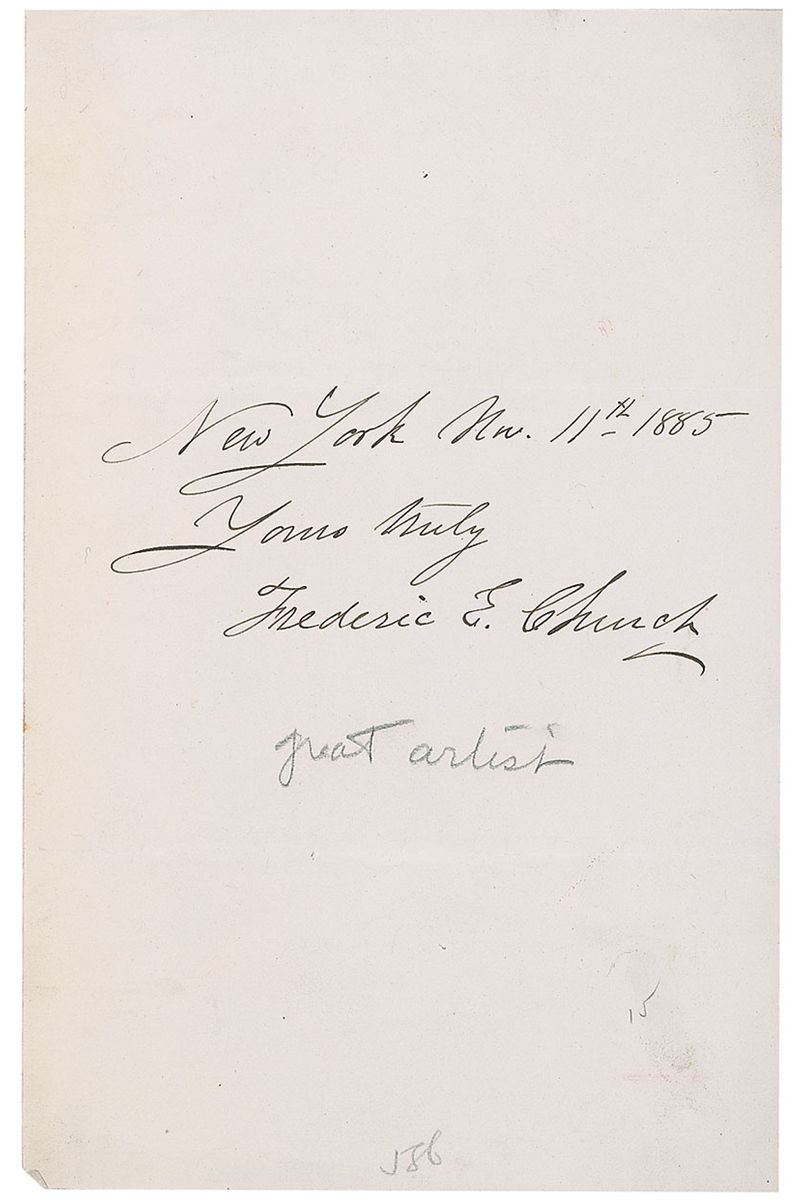 New York Nov. 11th 1885
Yours truly
Frederic E. Church
great artist
15
586